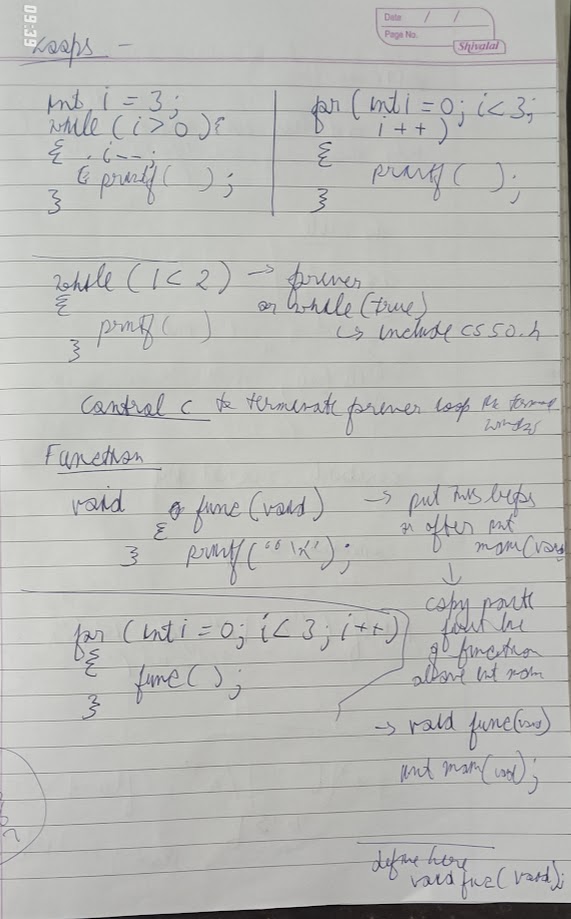 09:39
Date / /
Page No.
Shivalal
Loops -
int i = 3;
while (i > 0) {
{ i--;
printf( );
}
for (int i = 0; i < 3;
i++)
{
printf( );
}
while (1 < 2) → forever
{
or while (true)
printf( )
↳ include cs50.h
}
Control c to terminate forever loop
Function
void func (void)
{
printf(" );
}
→ put this before
or after int
main(void
↓
copy paste
first line
of function
above int main
→ void func(void)
int main(void);
for (int i = 0; i < 3; i++)
{
func ( );
}
define here
void func(void);